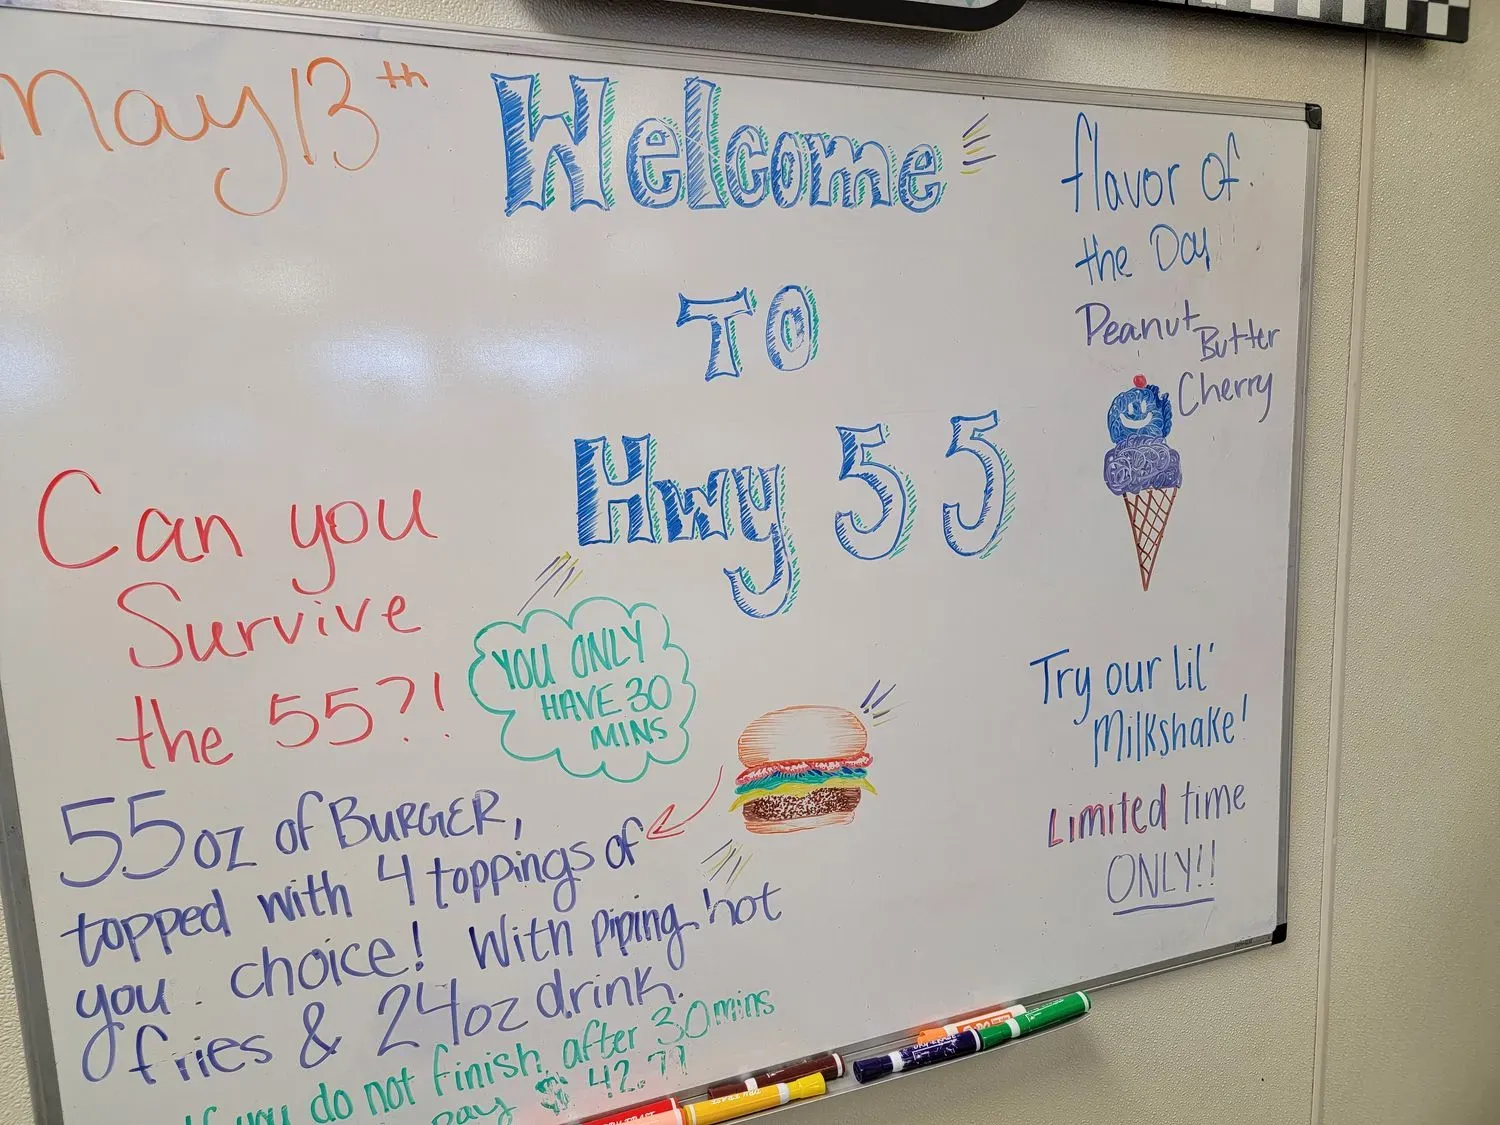 May 13th
Welcome
TO
Hwy 55
flavor of
the Day
Peanut Butter
Cherry
Can you
Survive
the 55?!
YOU ONLY
HAVE 30
MINS
55 oz of BURGER,
topped with 4 toppings of
you choice! With piping hot
fries & 24oz drink.
If you do not finish after 30 mins
pay $ 42.77
Try our Lil'
Milkshake!
Limited time
ONLY!!